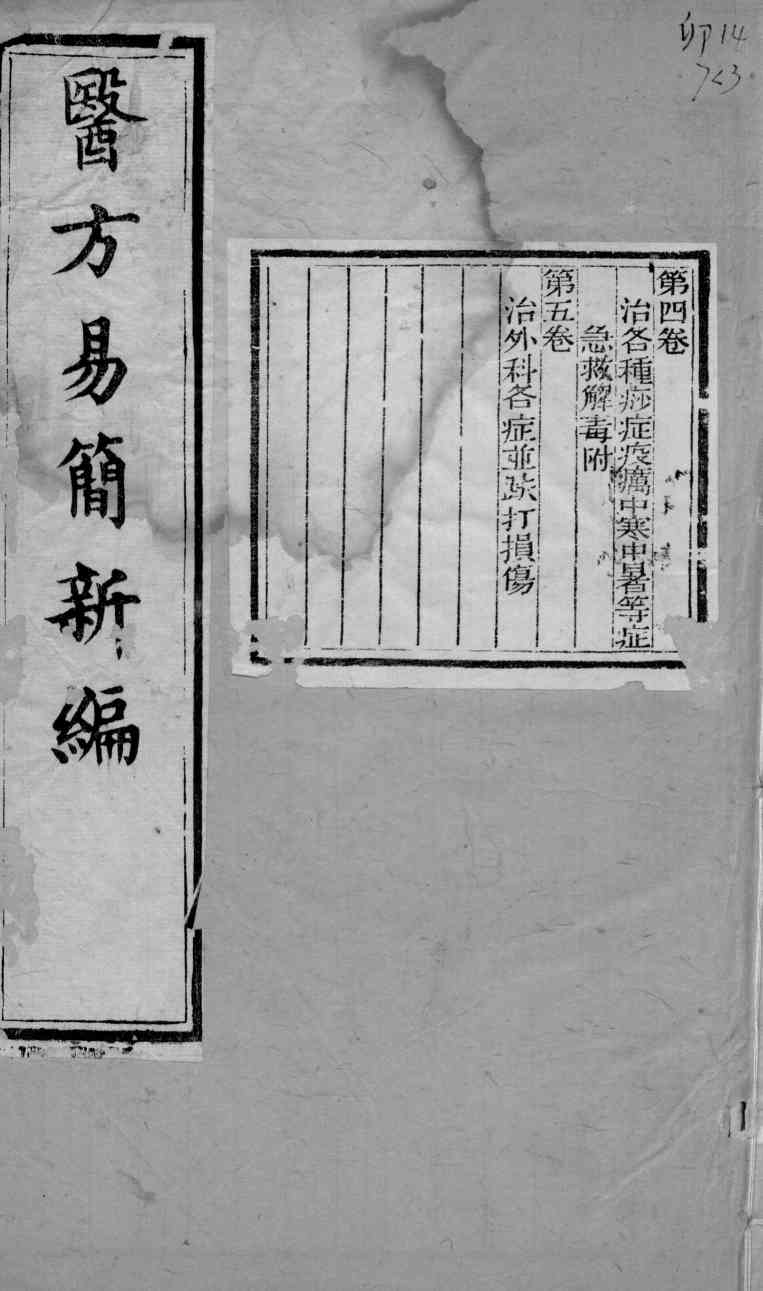 卯14
723
第四卷
治各種痧症疫癘中寒中暑等症
急救解毒附
第五卷
治外科各症並跌打損傷
醫方易簡新編